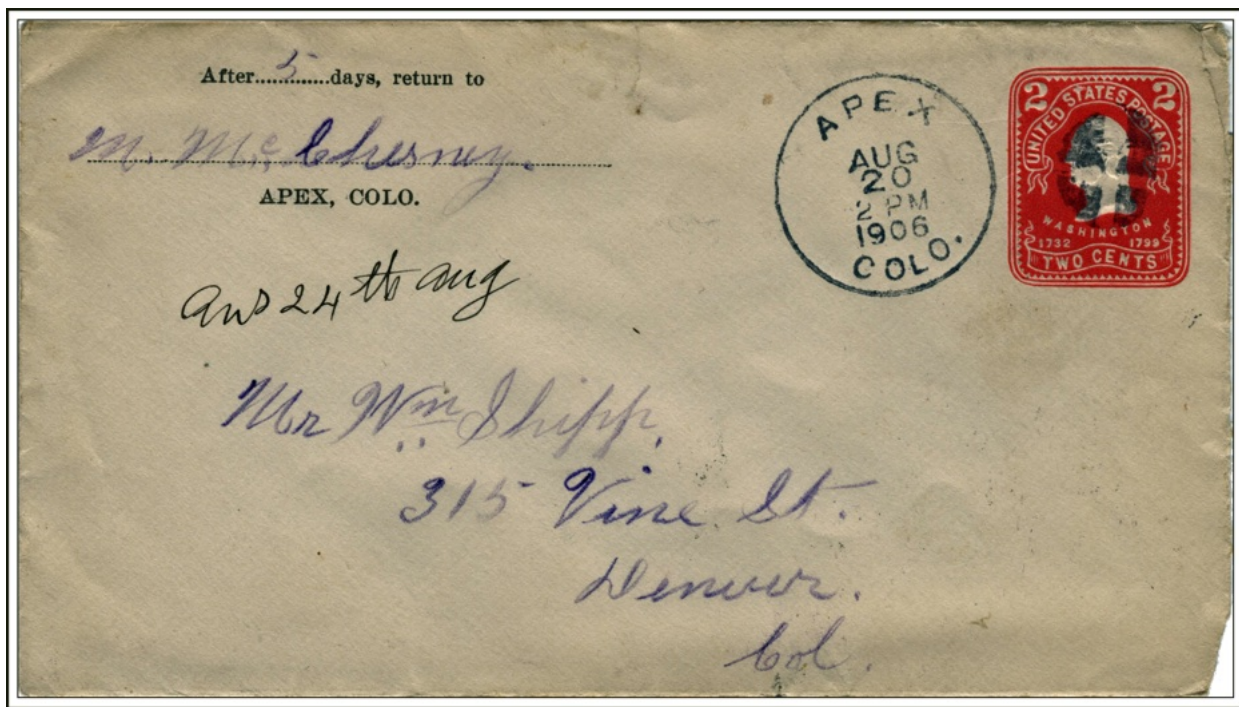 After.....5.......days, return to
M. McChesney.
APEX, COLO.
APEX
AUG
20
2 PM
1906
COLO.
2 2
UNITED STATES POSTAGE
WASHINGTON
1732 1799
TWO CENTS
ans 24th aug
Mr Wm Shipp.
315 Vine St.
Denver.
Col.